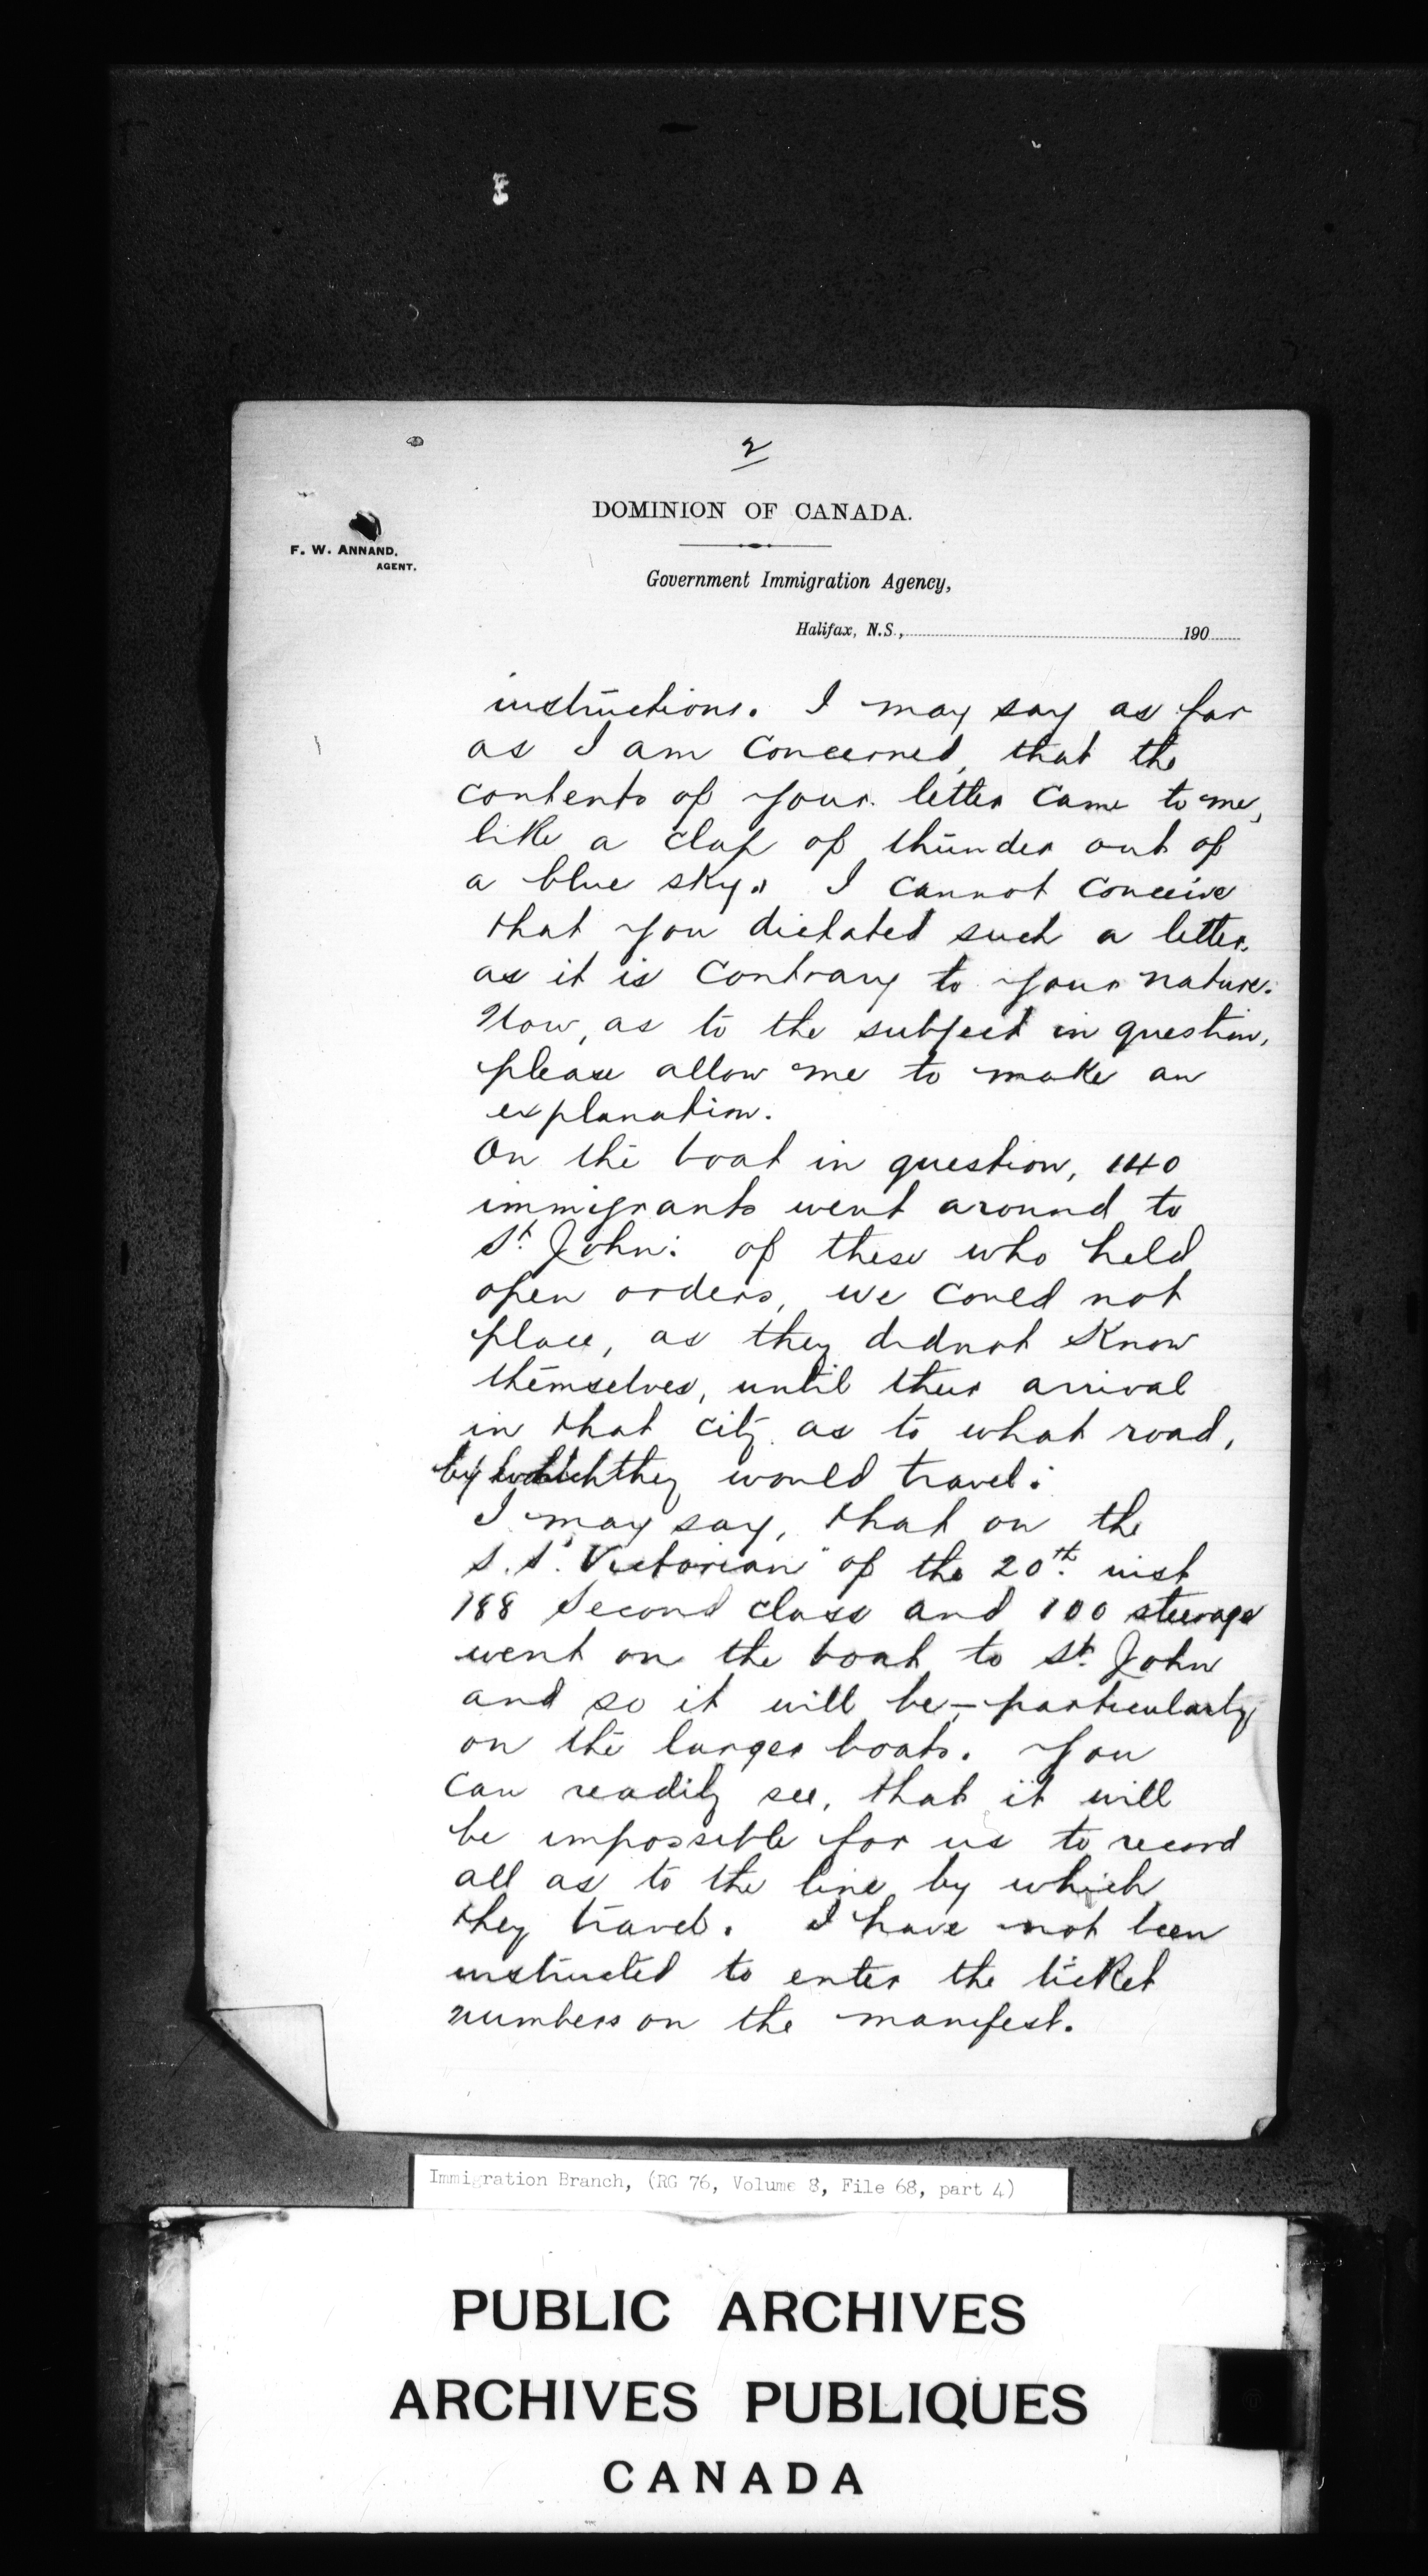 2
DOMINION OF CANADA.
F. W. ANNAND.
AGENT.
Government Immigration Agency,
Halifax, N.S., 190
instructions. I may say as far
as I am concerned, that the
contents of your letter came to me,
like a clap of thunder out of
a blue sky. I cannot conceive
that you dictated such a letter
as it is contrary to your nature.
Now, as to the subject in question,
please allow me to make an
explanation.
On the boat in question, 140
immigrants went around to
St. John: of these who held
open orders, we could not
place, as they did not know
themselves, until their arrival
in that city as to what road,
by which they would travel:
I may say, that on the
S.S. "Victorian" of the 20th. inst
188 Second class and 100 steerage
went on the boat to St. John
and so it will be – particularly
on the larger boats. You
can readily see, that it will
be impossible for us to record
all as to the line by which
they travel. I have not been
instructed to enter the ticket
numbers on the manifest.
Immigration Branch, (RG 76, Volume 8, File 68, part 4)
PUBLIC ARCHIVES
ARCHIVES PUBLIQUES
CANADA